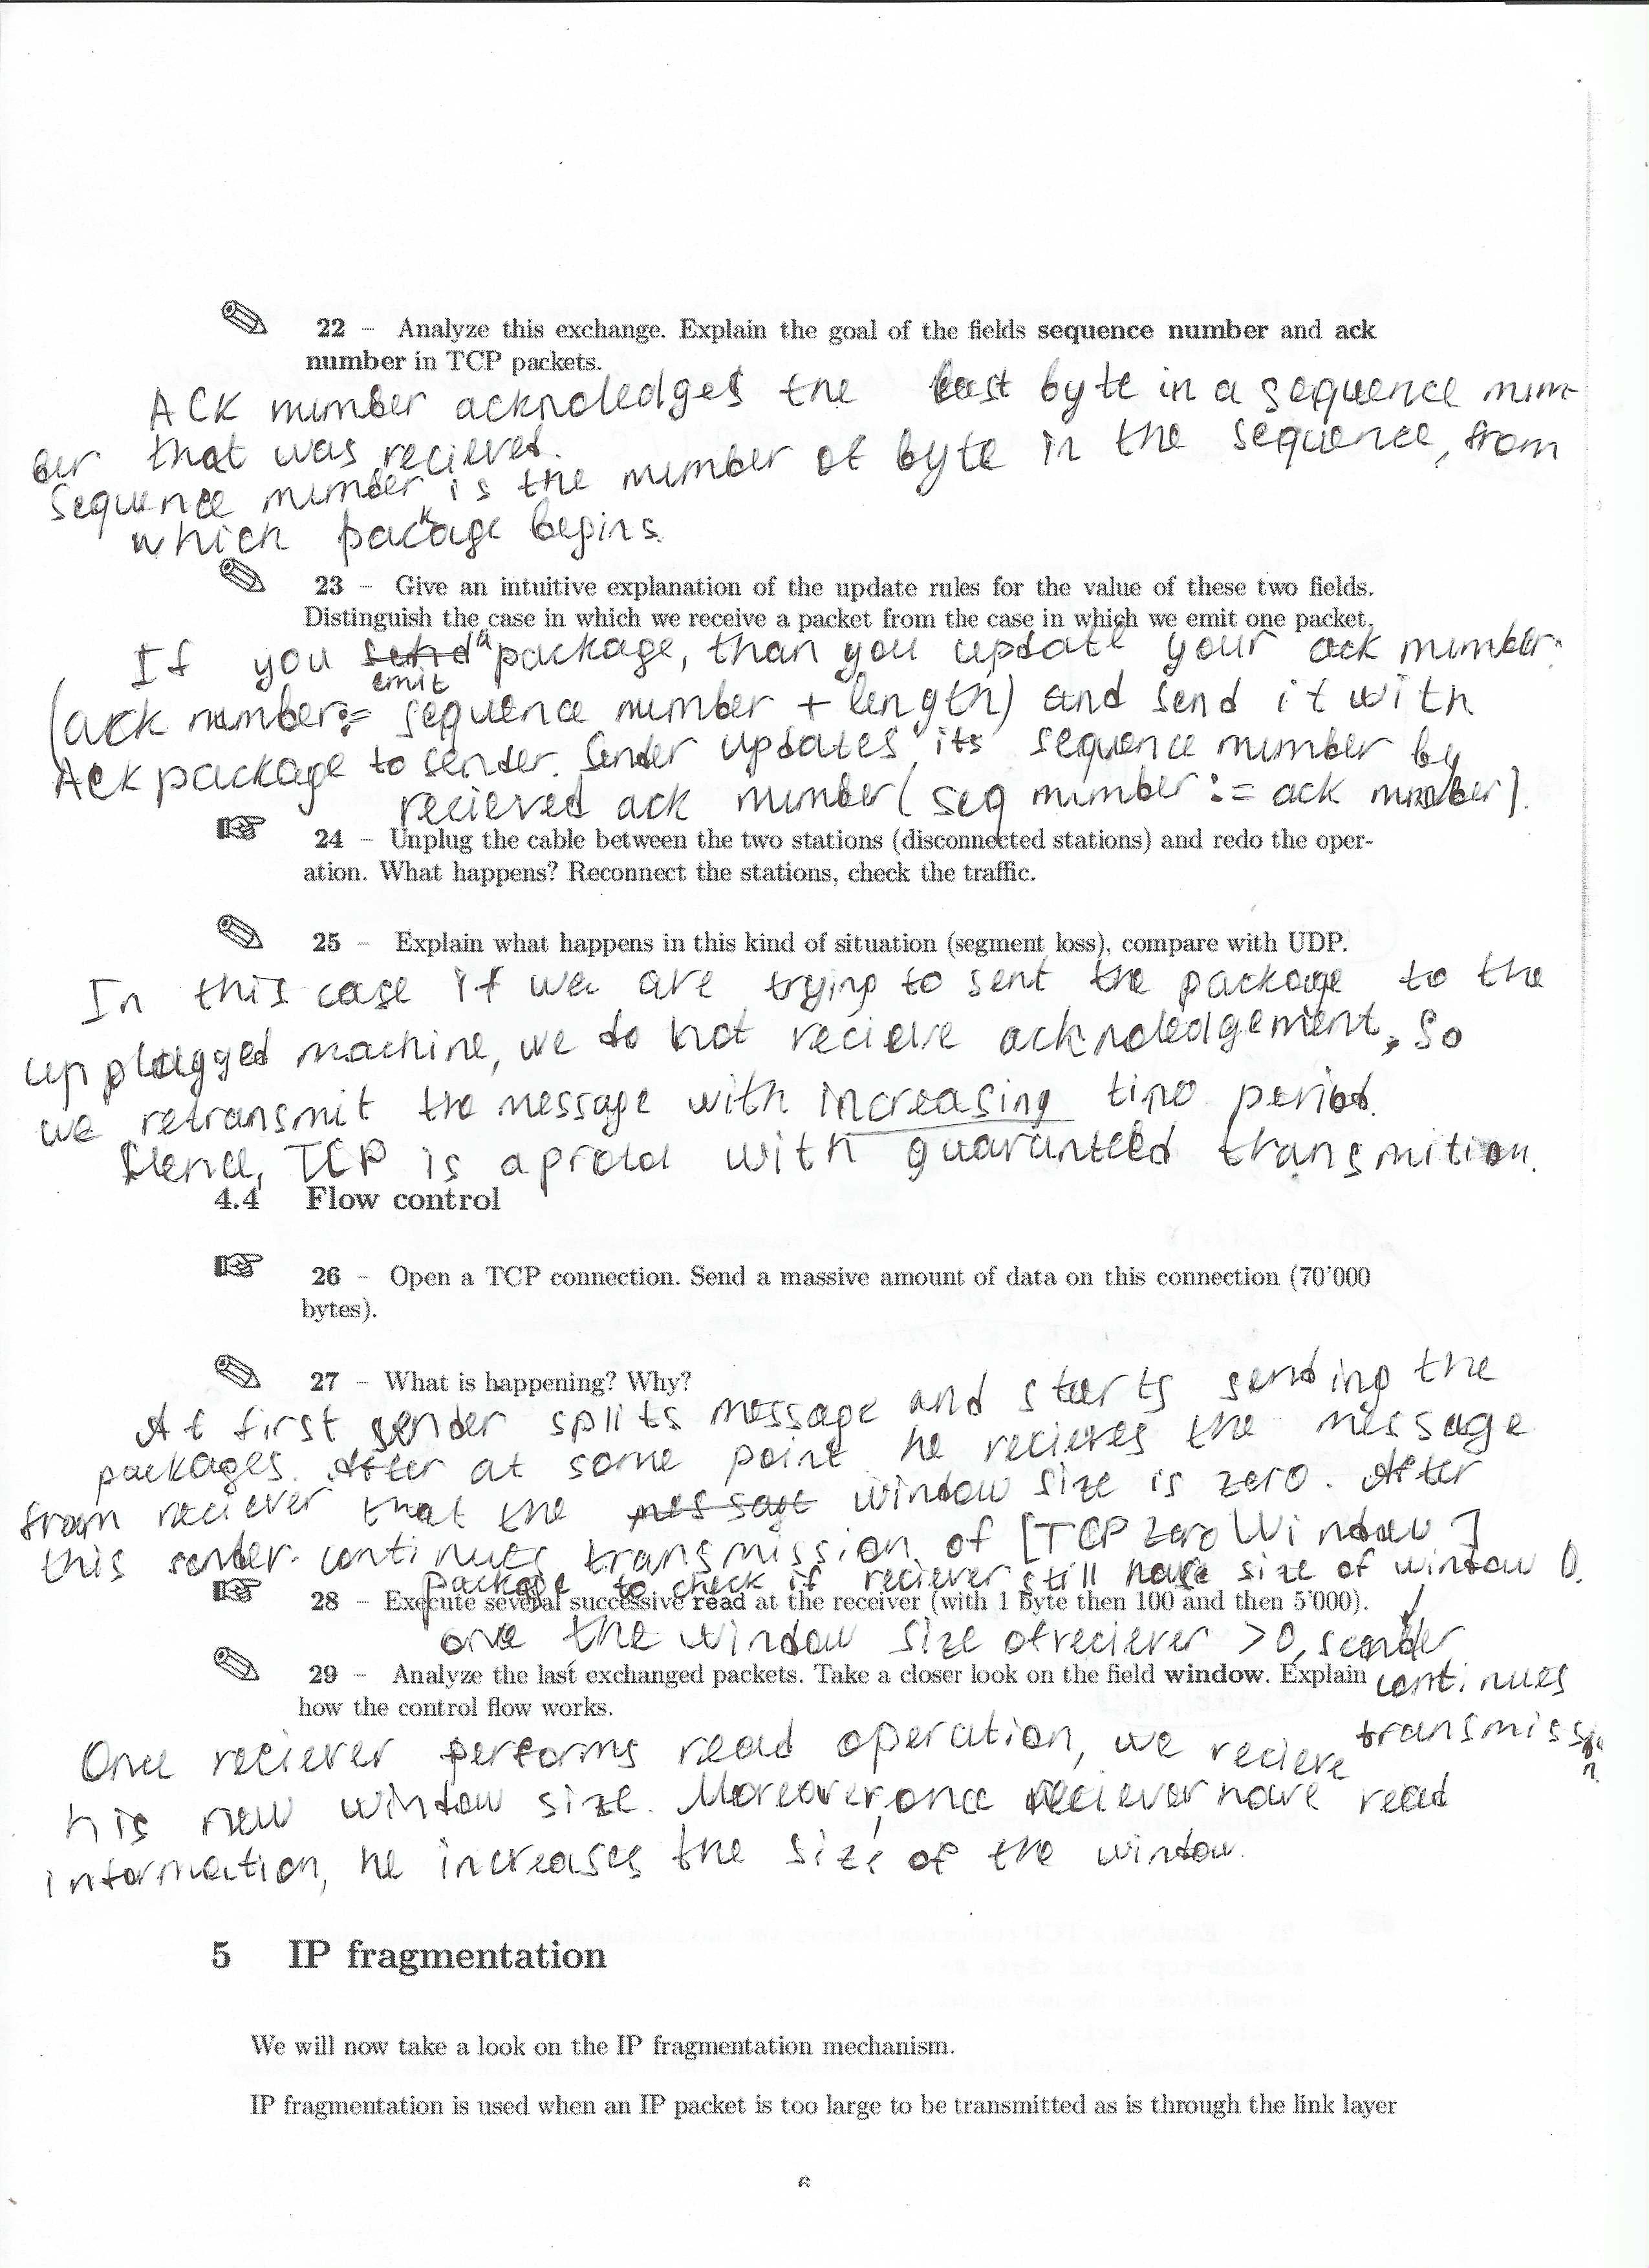 22 – Analyze this exchange. Explain the goal of the fields sequence number and ack
number in TCP packets.
ACK number acknoledges the last byte in a sequence num-
ber that was recieved.
Sequence number is the number of byte in the sequence, from
which package begins.
23 – Give an intuitive explanation of the update rules for the value of these two fields.
Distinguish the case in which we receive a packet from the case in which we emit one packet.
If you send a package, than you update your ack number
emit
(ack number:= sequence number + length) and send it with
ACK package to sender. Sender updates its sequence number by
recieved ack number (seq number := ack number).
24 – Unplug the cable between the two stations (disconnected stations) and redo the oper-
ation. What happens? Reconnect the stations, check the traffic.
25 – Explain what happens in this kind of situation (segment loss), compare with UDP.
In this case if we are trying to sent the package to the
unplugged machine, we do not recieve acknoledgement, so
we retransmit the message with increasing time period.
Hence, TCP is a protol with guaranteed transmition.
4.4 Flow control
26 – Open a TCP connection. Send a massive amount of data on this connection (70'000
bytes).
27 – What is happening? Why?
At first sender splits message and starts sending the
packages. After at some point he recieves the message
from reciever that the message window size is zero. After
this sender continues transmission of [TCP Zero Window]
package to check if reciever still have size of window 0.
28 – Execute several successive read at the receiver (with 1 byte then 100 and then 5'000).
once the window size of reciever >0, sender
29 – Analyze the last exchanged packets. Take a closer look on the field window. Explain
continues
how the control flow works.
transmission.
Once reciever performs read operation, we recieve
his new window size. Moreover, once reciever have read
information, he increases the size of the window.
5 IP fragmentation
We will now take a look on the IP fragmentation mechanism.
IP fragmentation is used when an IP packet is too large to be transmitted as is through the link layer
6